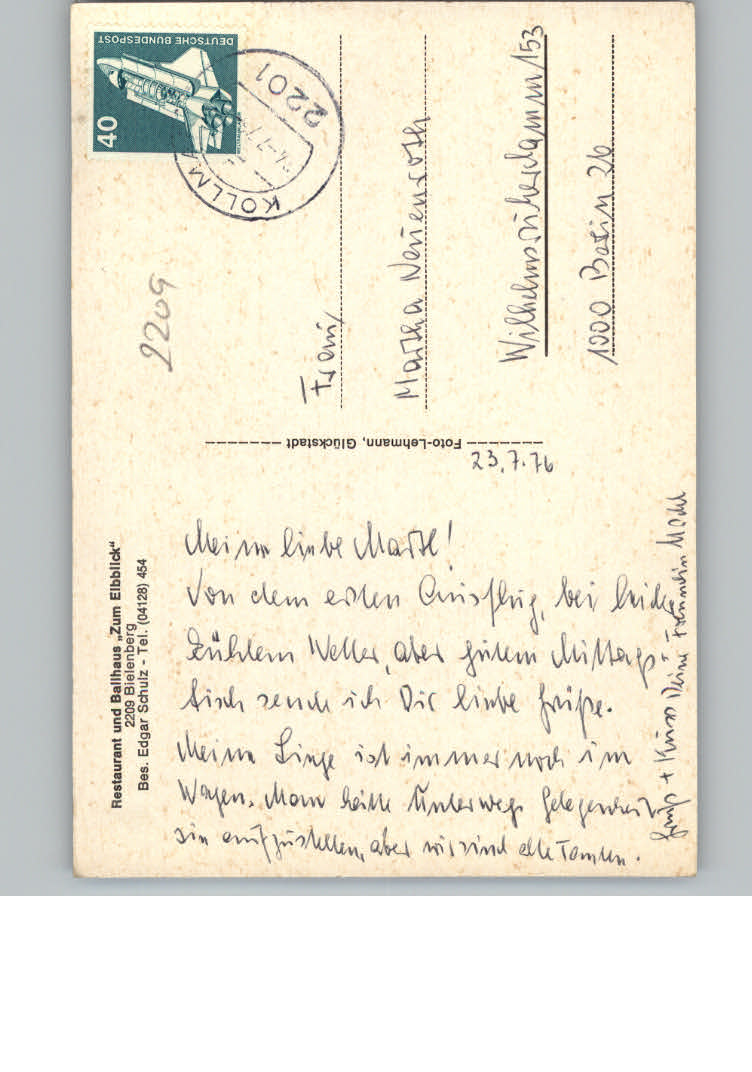 Restaurant und Ballhaus „Zum Elbblick“
2209 Bielenberg
Bes. Edgar Schulz - Tel. (04128) 454
23.7.76
Meine liebe Martl!
Von dem ersten Ausflug, bei leider
kühlem Wetter, aber gutem Mittags-
tisch sende ich Dir liebe Grüße.
Meine Liege ist immer noch im
Wagen. Man hätte unterwegs Gelegenheit
sie aufzustellen, aber wir sind alle Tanten.
Gruß + Kuss Deine
Foto-Lehmann, Glückstadt
DEUTSCHE BUNDESPOST
40
2201
KOLLM
2209
Frau
Martha Neuenroth
Wilhelmsruherdamm 153
1000 Berlin 26